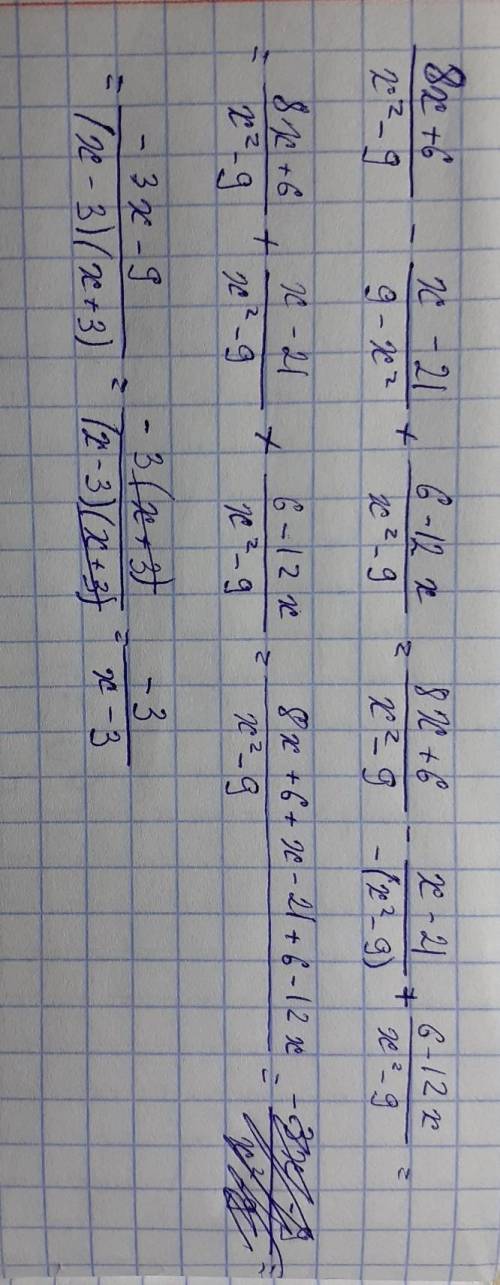 (8x+6)/(x²-9) - (x-21)/(9-x²) + (6-12x)/(x²-9) = (8x+6)/(x²-9) - (x-21)/(-(x²-9)) + (6-12x)/(x²-9) =
= (8x+6)/(x²-9) + (x-21)/(x²-9) + (6-12x)/(x²-9) = (8x+6+x-21+6-12x)/(x²-9) =
= (-3x-9)/((x-3)(x+3)) = (-3(x+3))/((x-3)(x+3)) = (-3)/(x-3)